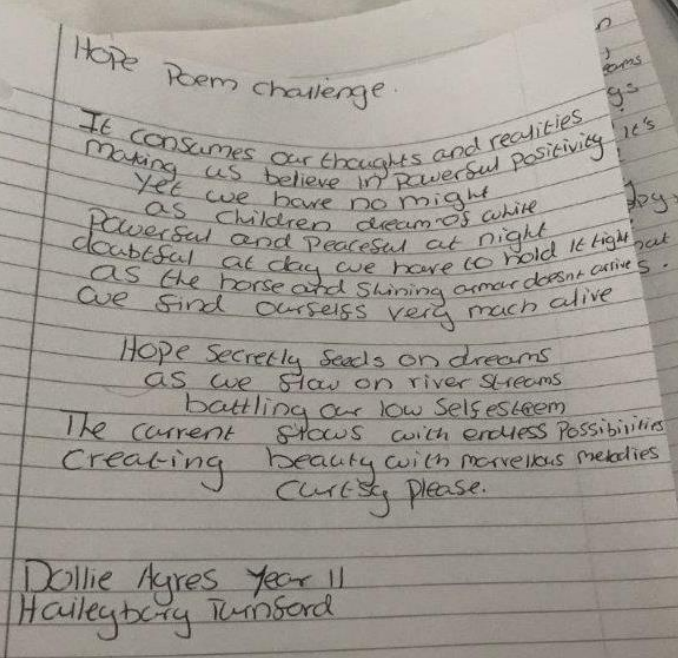 Hope Poem Challenge.
It consumes our thoughts and realities
making us believe in powerful positivity
yet we have no might
as children dream of white
Powerful and Peaceful at night
doubtful at day we have to hold it tight
as the horse and shining armar doesnt arrive
we find ourselfs very much alive
Hope secretly feeds on dreams
as we flow on river streams
battling our low self esteem
The current flows with endless Possibilities
Creating beauty with marvellous melodies
Curtsy Please.
Dollie Ayres Year 11
Haileybury Turnford
it's